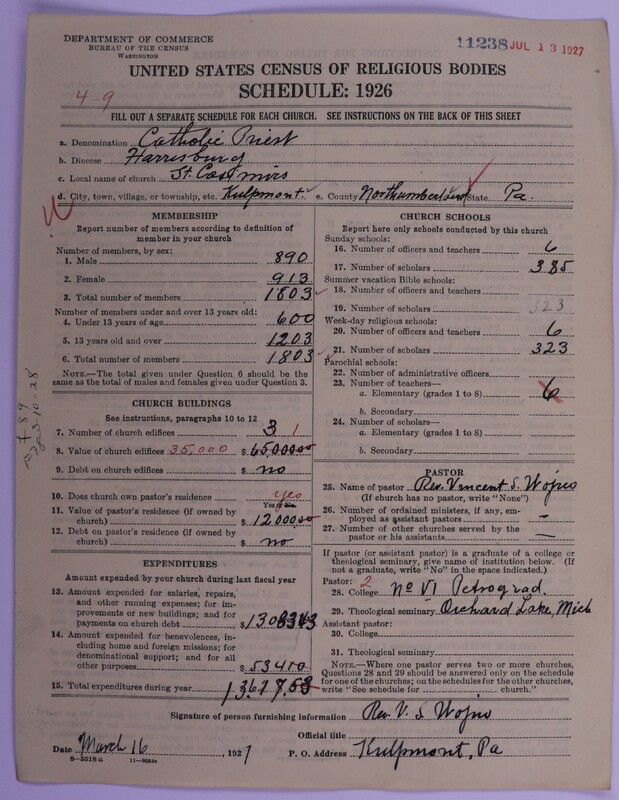 DEPARTMENT OF COMMERCE
BUREAU OF THE CENSUS
WASHINGTON
11238 JUL 13 1927
UNITED STATES CENSUS OF RELIGIOUS BODIES
SCHEDULE: 1926
4-9
FILL OUT A SEPARATE SCHEDULE FOR EACH CHURCH. SEE INSTRUCTIONS ON THE BACK OF THIS SHEET
a. Denomination Catholic Priest
b. Diocese Harrisburg
c. Local name of church St. Casimirs
d. City, town, village, or township, etc. Kulpmont. e. County Northumberland State Pa.
MEMBERSHIP
Report number of members according to definition of member in your church
Number of members, by sex:
1. Male 890
2. Female 913
3. Total number of members 1803
Number of members under and over 13 years old:
4. Under 13 years of age 600
5. 13 years old and over 1203
6. Total number of members 1803
NOTE.—The total given under Question 6 should be the same as the total of males and females given under Question 3.
CHURCH BUILDINGS
See instructions, paragraphs 10 to 12
7. Number of church edifices 3 1
8. Value of church edifices 35,000 $ 65000.00
9. Debt on church edifices $ no
10. Does church own pastor's residence yes
Yes or No
11. Value of pastor's residence (if owned by church) $ 12000.00
12. Debt on pastor's residence (if owned by church) $ no
EXPENDITURES
Amount expended by your church during last fiscal year
13. Amount expended for salaries, repairs, and other running expenses; for improvements or new buildings; and for payments on church debt $
14. Amount expended for benevolences, including home and foreign missions; for denominational support; and for all other purposes $ 534.10
15. Total expenditures during year
CHURCH SCHOOLS
Report here only schools conducted by this church
Sunday schools:
16. Number of officers and teachers 6
17. Number of scholars 385
Summer vacation Bible schools:
18. Number of officers and teachers
19. Number of scholars 323
Week-day religious schools:
20. Number of officers and teachers 6
21. Number of scholars 323
Parochial schools:
22. Number of administrative officers
23. Number of teachers—
a. Elementary (grades 1 to 8) 6
b. Secondary
24. Number of scholars—
a. Elementary (grades 1 to 8)
b. Secondary
PASTOR
25. Name of pastor Rev. Vincent S. Wojno
(If church has no pastor, write "None")
26. Number of ordained ministers, if any, employed as assistant pastors –
27. Number of other churches served by the pastor or his assistants —
If pastor (or assistant pastor) is a graduate of a college or theological seminary, give name of institution below. (If not a graduate, write "No" in the space indicated.)
Pastor: 2
28. College No VI Petrograd.
29. Theological seminary Orchard Lake, Mich
Assistant pastor:
30. College
31. Theological seminary
NOTE.—Where one pastor serves two or more churches, Questions 28 and 29 should be answered only on the schedule for one of the churches; on the schedules for the other churches, write "See schedule for ______ church."
Signature of person furnishing information Rev. V. S. Wojno
Official title
Date March 16, 1927 P. O. Address Kulpmont, Pa
8-5518a